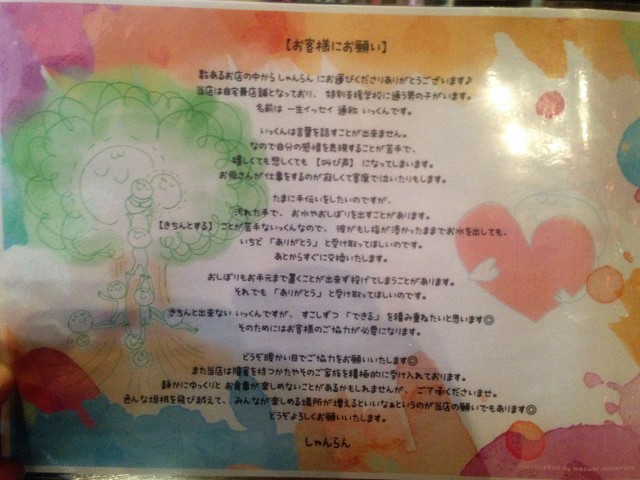 【お客様にお願い】
数あるお店の中から しゃんらん にお運びくださりありがとうございます♪
当店は自宅兼店舗となっており、 特別支援学校に通う男の子がいます。
名前は 一生イッセイ 通称 いっくんです。
いっくんは言葉を話すことが出来ません。
なので自分の感情を表現することが苦手で、
嬉しくても悲しくても 【叫び声】 になってしまいます。
お母さんが仕事をするのが寂しくて客席で泣いたりもします。
たまに手伝いをしたいのですが、
汚れた手で、 お水やおしぼりを出すことがあります。
【きちんとする】 ことが苦手ないっくんなので、 彼がもし指が浸かったままでお水を出しても、
いちど 「ありがとう」 と受け取ってほしいのです。
あとからすぐに交換いたします。
おしぼりもお手元まで置くことが出来ず投げてしまうことがあります。
それでも 「ありがとう」 と受け取ってほしいのです。
きちんと出来ない いっくんですが、 すこしずつ 「できる」 を積み重ねたいと思います◎
そのためにはお客様のご協力が必要になります。
どうぞ暖かい目でご協力をお願いいたします◎
また当店は障害を持つかたやそのご家族を積極的に受け入れております。
静かにゆっくりと お食事が楽しめないことがあるかもしれませんが、 ご了承くださいませ。
色んな垣根を飛び越えて、 みんなが楽しめる場所が増えるといいなぁというのが当店の願いでもあります◎
どうぞよろしくお願いいたします。
しゃんらん